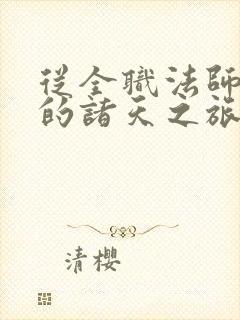 從全職法師
的諸天之旅
清櫻